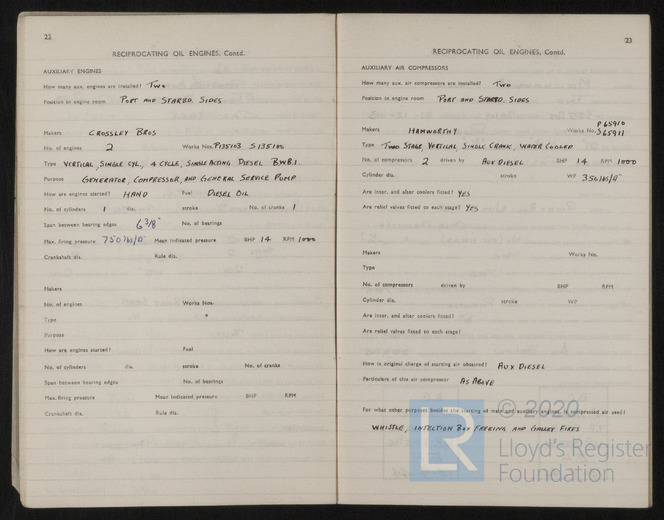 22
RECIPROCATING OIL ENGINES, Contd.
AUXILIARY ENGINES
How many aux. engines are installed? Two
Position in engine room PORT AND STARBD. SIDES
Makers CROSSLEY BROS
No. of engines 2 Works Nos. P135103 S135100
Type VERTICAL, SINGLE CYL, 4 CYCLE, SINGLE ACTING DIESEL B.W.B.1.
Purpose GENERATOR, COMPRESSOR, AND GENERAL SERVICE PUMP
How are engines started? HAND Fuel DIESEL OIL
No. of cylinders 1 dia. stroke No. of cranks 1
Span between bearing edges 6 3/8" No. of bearings
Max. firing pressure 750 lbs/□" Mean indicated pressure BHP 14 RPM 1000
Crankshaft dia. Rule dia.
Makers
No. of engines Works Nos.
Type
Purpose
How are engines started? Fuel
No. of cylinders dia. stroke No. of cranks
Span between bearing edges No. of bearings
Max. firing pressure Mean indicated pressure BHP RPM
Crankshaft dia. Rule dia.
23
RECIPROCATING OIL ENGINES, Contd.
AUXILIARY AIR COMPRESSORS
How many aux. air compressors are installed? Two
Position in engine room PORT AND STARBD. SIDES
P 65910
Makers HAMWORTHY Works No. S65911
Type TWO STAGE VERTICAL, SINGLE CRANK, WATER COOLED
No. of compressors 2 driven by AUX DIESEL BHP 14 RPM 1000
Cylinder dia. stroke WP 350 lbs/□"
Are inter. and after coolers fitted? YES
Are relief valves fitted to each stage? YES
Makers Works No.
Type
No. of compressors driven by BHP RPM
Cylinder dia. stroke WP
Are inter. and after coolers fitted?
Are relief valves fitted to each stage?
How is original charge of starting air obtained? AUX DIESEL
Particulars of this air compressor AS ABOVE
For what other purposes besides the starting of main and auxiliary engines, is compressed air used?
WHISTLE, INJECTION BOX FREEING AND GALLEY FIRES
© 2020
LR
Lloyd's Register
Foundation